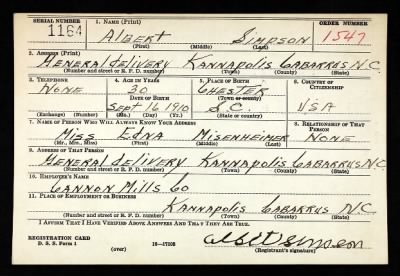 SERIAL NUMBER 1. NAME (Print) ORDER NUMBER
1164 ALBERT SIMPSON 1547
(First) (Middle) (Last)
2. ADDRESS (Print)
GENERAL DELIVERY KANNAPOLIS CABARRUS N.C.
(Number and street or R. F. D. number) (Town) (County) (State)
3. TELEPHONE 4. AGE IN YEARS 5. PLACE OF BIRTH 6. COUNTRY OF CITIZENSHIP
NONE 30 CHESTER
DATE OF BIRTH (Town or county)
SEPT 16 1910 S.C. USA
(Exchange) (Number) (Mo.) (Day) (Yr.) (State or country)
7. NAME OF PERSON WHO WILL ALWAYS KNOW YOUR ADDRESS 8. RELATIONSHIP OF THAT PERSON
MISS EDNA MISENHEIMER NONE
(Mr., Mrs., Miss) (First) (Middle) (Last)
9. ADDRESS OF THAT PERSON
GENERAL DELIVERY KANNAPOLIS CABARRUS N.C.
(Number and street or R. F. D. number) (Town) (County) (State)
10. EMPLOYER'S NAME
CANNON MILLS CO
11. PLACE OF EMPLOYMENT OR BUSINESS
KANNAPOLIS CABARRUS N.C.
(Number and street or R. F. D. number) (Town) (County) (State)
I AFFIRM THAT I HAVE VERIFIED ABOVE ANSWERS AND THAT THEY ARE TRUE.
REGISTRATION CARD
D. S. S. Form 1 (over) 16—17105 (Registrant's signature)